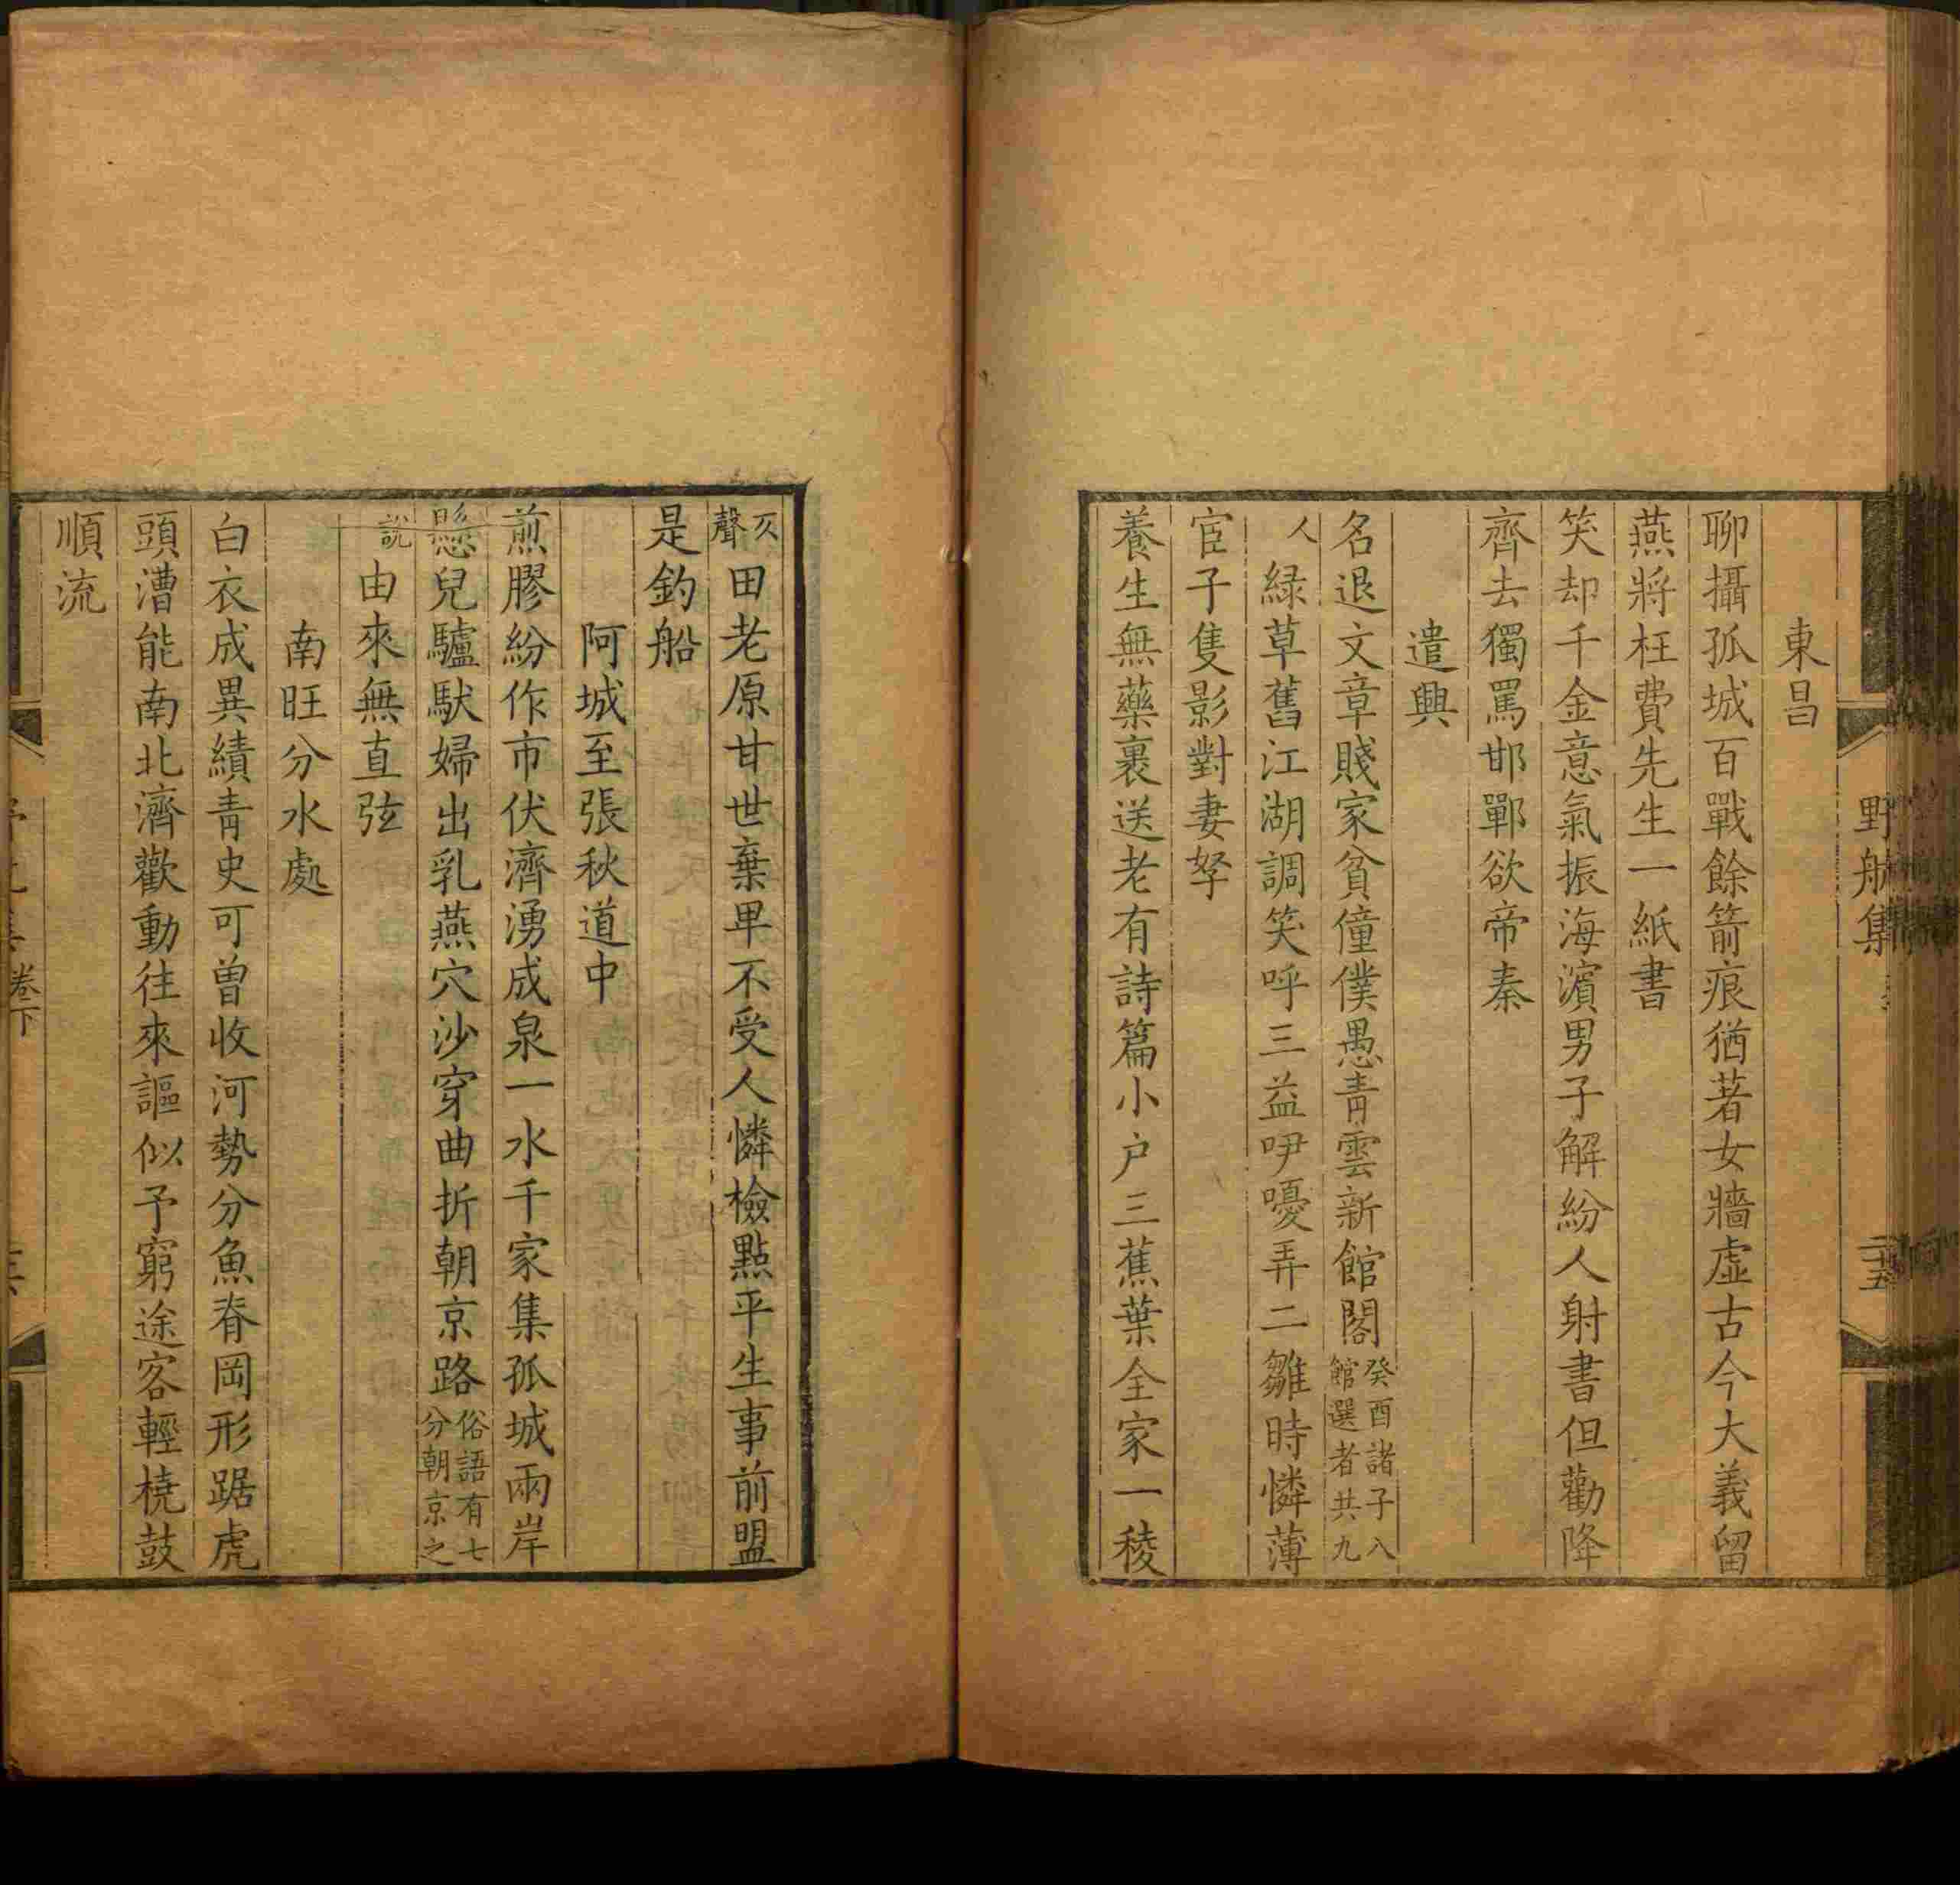 野航集
二十五
東昌
聊攝孤城百戰餘箭痕猶著女牆虛古今大義留
燕將枉費先生一紙書
笑却千金意氣振海濵男子解紛人射書但勸降
齊去獨罵邯鄲欲帝秦
遣興
名退文章賤家貧僮僕愚青雲新館閣癸酉諸子入
館選者共九
人緑草舊江湖調笑呼三益吚嚘弄二雛時憐薄
宦子隻影對妻孥
養生無藥裹送老有詩篇小户三蕉葉全家一稜
仄
聲田老原甘世棄卑不受人憐檢點平生事前盟
是釣船
阿城至張秋道中
煎膠紛作市伏濟湧成泉一水千家集孤城兩岸
懸兒驢馱婦出乳燕穴沙穿曲折朝京路俗語有七
分朝京之
說由來無直弦
南旺分水處
白衣成異績青史可曾收河勢分魚脊岡形踞虎
頭漕能南北濟歡動往來謳似予窮途客輕橈鼓
順流
卷下